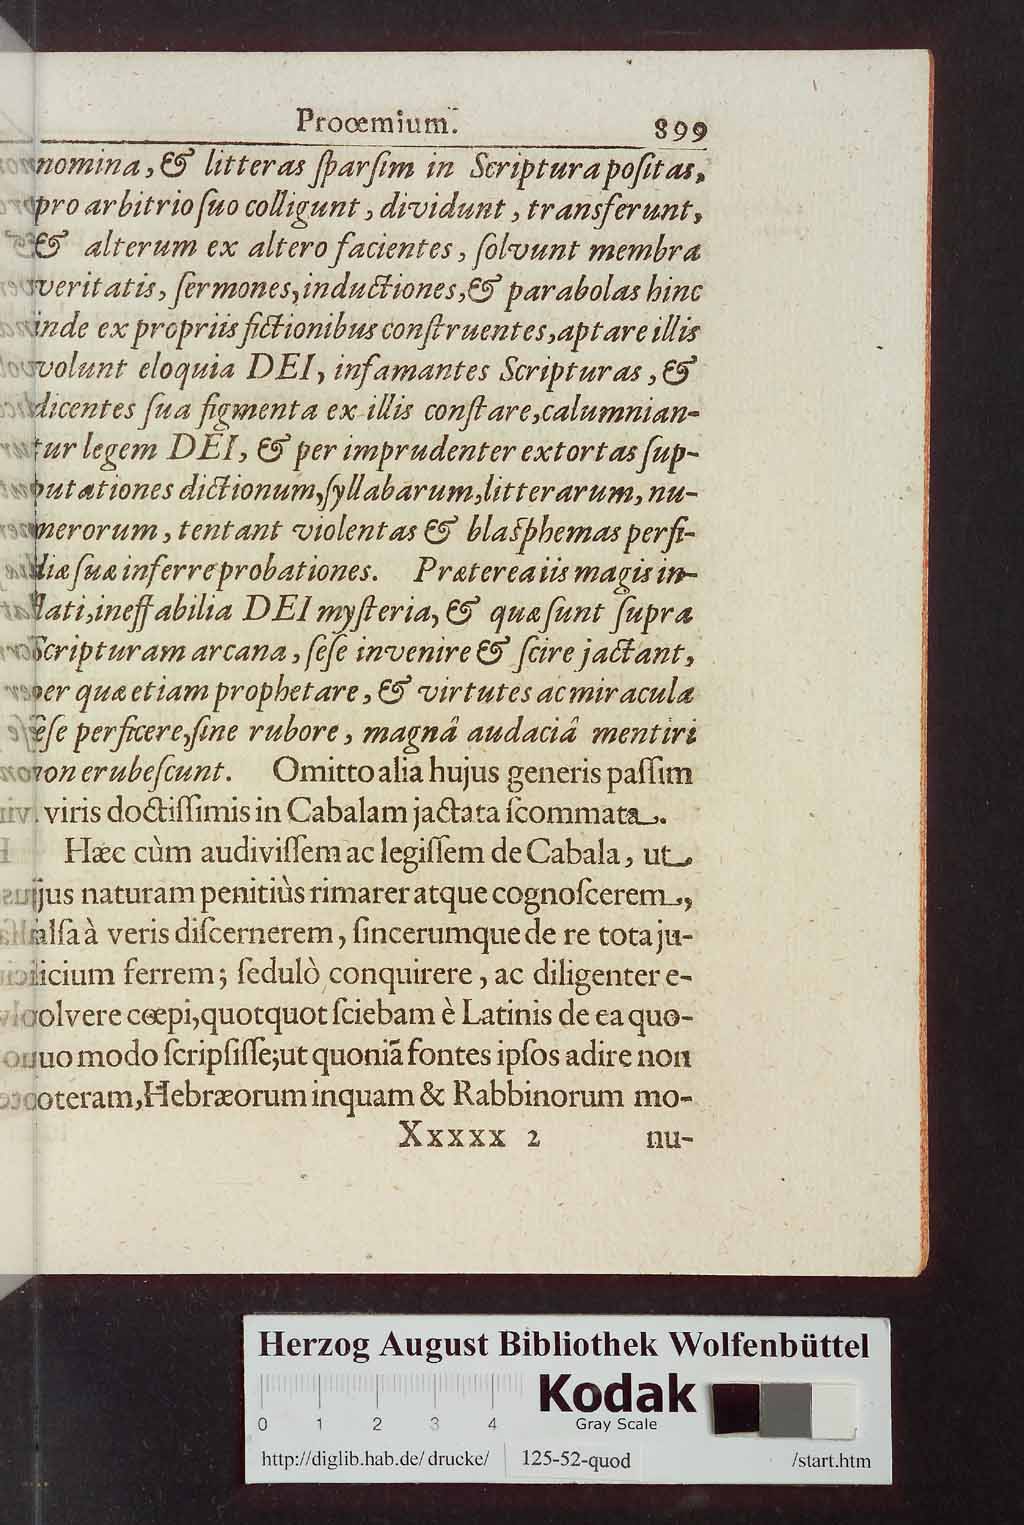 Proœmium. 899
nomina, & litteras ſparſim in Scriptura poſitas,
pro arbitrio ſuo colligunt, dividunt, transferunt,
& alterum ex altero facientes, ſolvunt membra
veritatis, ſermones, inductiones, & parabolas hinc
inde ex propriis fictionibus conſtruentes, aptare illis
volunt eloquia DEI, infamantes Scripturas, &
dicentes ſua figmenta ex illis conſtare, calumnian-
tur legem DEI, & per imprudenter extortas ſup-
putationes dictionum, ſyllabarum, litterarum, nu-
merorum, tentant violentas & blaſphemas perfi-
diæ ſuæ inferre probationes. Præterea iis magis in-
flati, ineffabilia DEI myſteria, & quæ ſunt ſupra
Scripturam arcana, ſeſe invenire & ſcire jactant,
per quæ etiam prophetare, & virtutes ac miracula
ſeſe perficere, ſine rubore, magnâ audaciâ mentiri
non erubeſcunt. Omitto alia hujus generis paſſim
. viris doctiſſimis in Cabalam jactata ſcommata.
Hæc cùm audiviſſem ac legiſſem de Cabala, ut,
jus naturam penitiùs rimarer atque cognoſcerem,
alſa à veris diſcernerem, ſincerumque de re tota ju-
dicium ferrem; ſedulò conquirere, ac diligenter e-
volvere cœpi, quotquot ſciebam è Latinis de ea quo-
quo modo ſcripſiſſe; ut quoniã fontes ipſos adire non
poteram, Hebræorum inquam & Rabbinorum mo-
Xxxxx 2 nu-
Herzog August Bibliothek Wolfenbüttel
Kodak
Gray Scale
0 1 2 3 4
http://diglib.hab.de/drucke/ 125-52-quod /start.htm